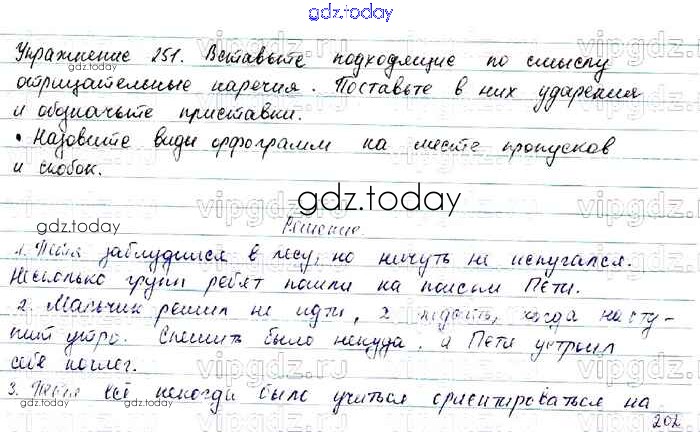 gdz.today
Упражнение 251. Вставьте подходящие по смыслу
отрицательные наречия. Поставьте в них ударения
и обозначьте приставки.
• Назовите виды орфограмм на месте пропусков
и скобок.
gdz.today
gdz.today
Решение
1. Петя заблудился в лесу, но ничуть не испугался.
Несколько групп ребят пошли на поиски Пети.
2. Мальчик решил не идти, а подождать, когда насту-
пит утро. Спешить было некуда, и Петя устроил
себе ночлег.
3. Пете некогда было учиться ориентироваться на
gdz.today
202
vipgdz.ru